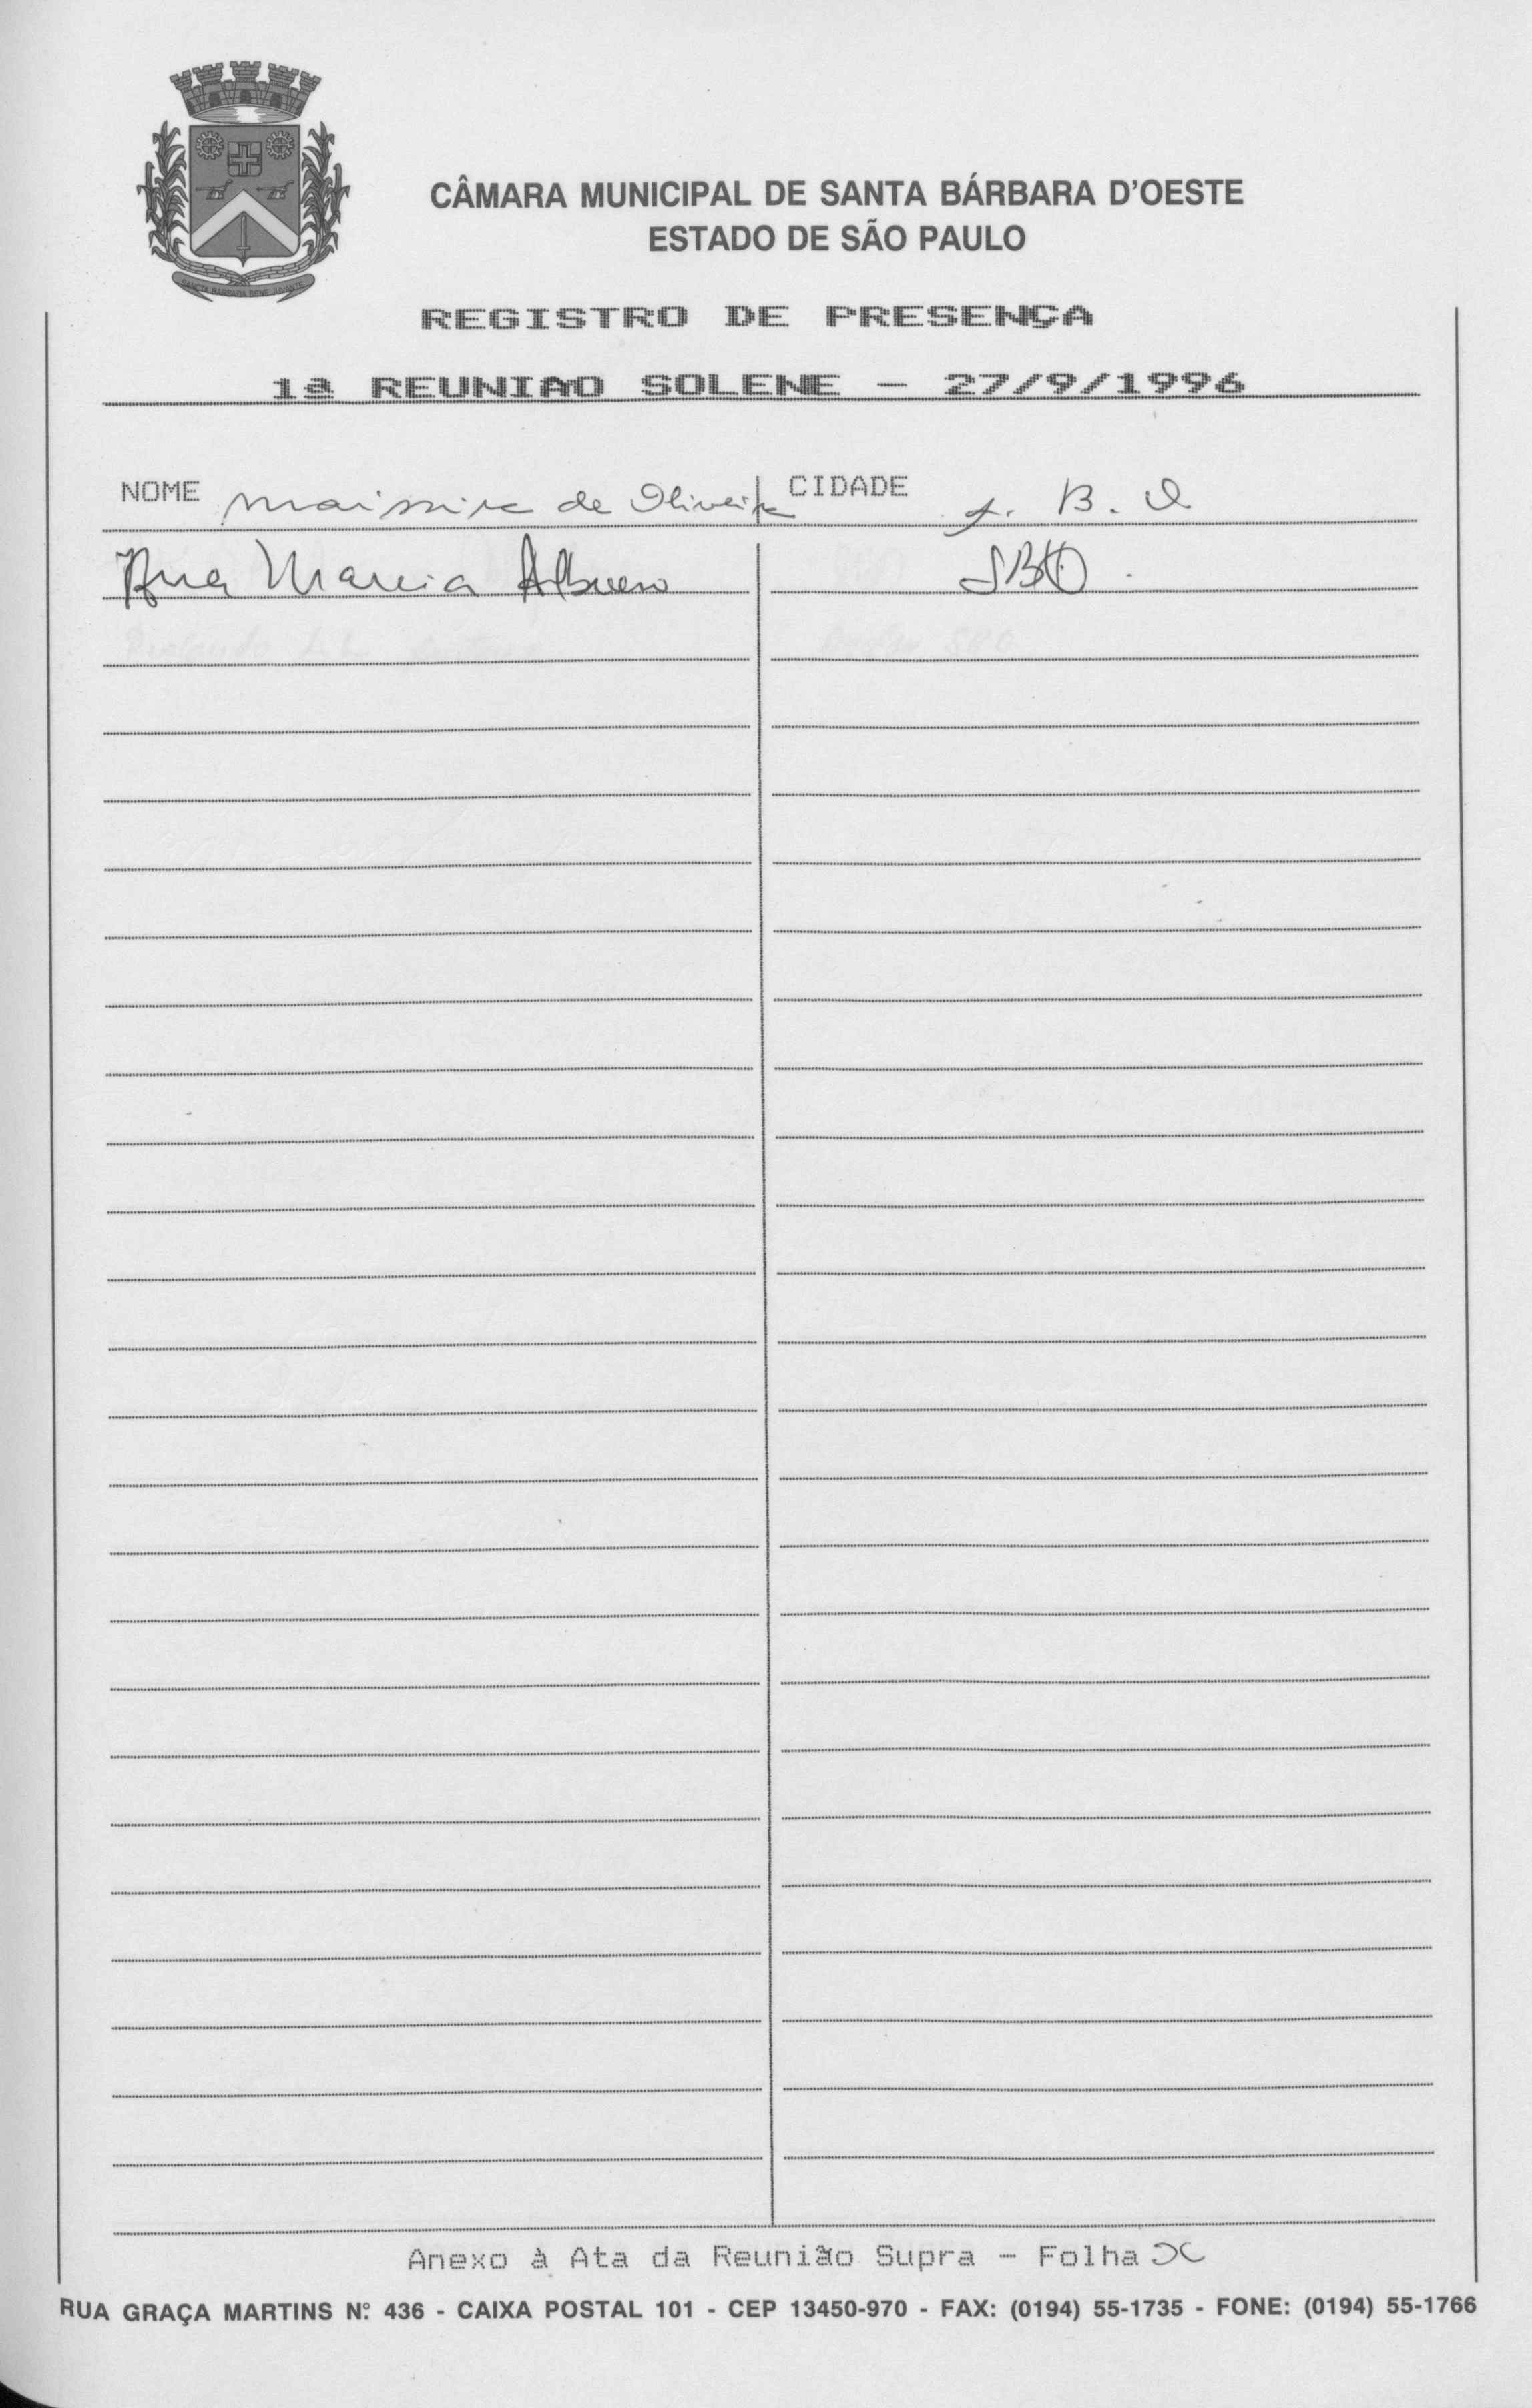 SANCTA BARBARA BENE JUVANTE
CÂMARA MUNICIPAL DE SANTA BÁRBARA D'OESTE
ESTADO DE SÃO PAULO
REGISTRO DE PRESENÇA
1ª REUNIÃO SOLENE - 27/9/1996
NOME de Oliveira CIDADE S. B. O
Ana Marcia SBO.
Anexo à Ata da Reunião Supra - Folha X
RUA GRAÇA MARTINS Nº 436 - CAIXA POSTAL 101 - CEP 13450-970 - FAX: (0194) 55-1735 - FONE: (0194) 55-1766